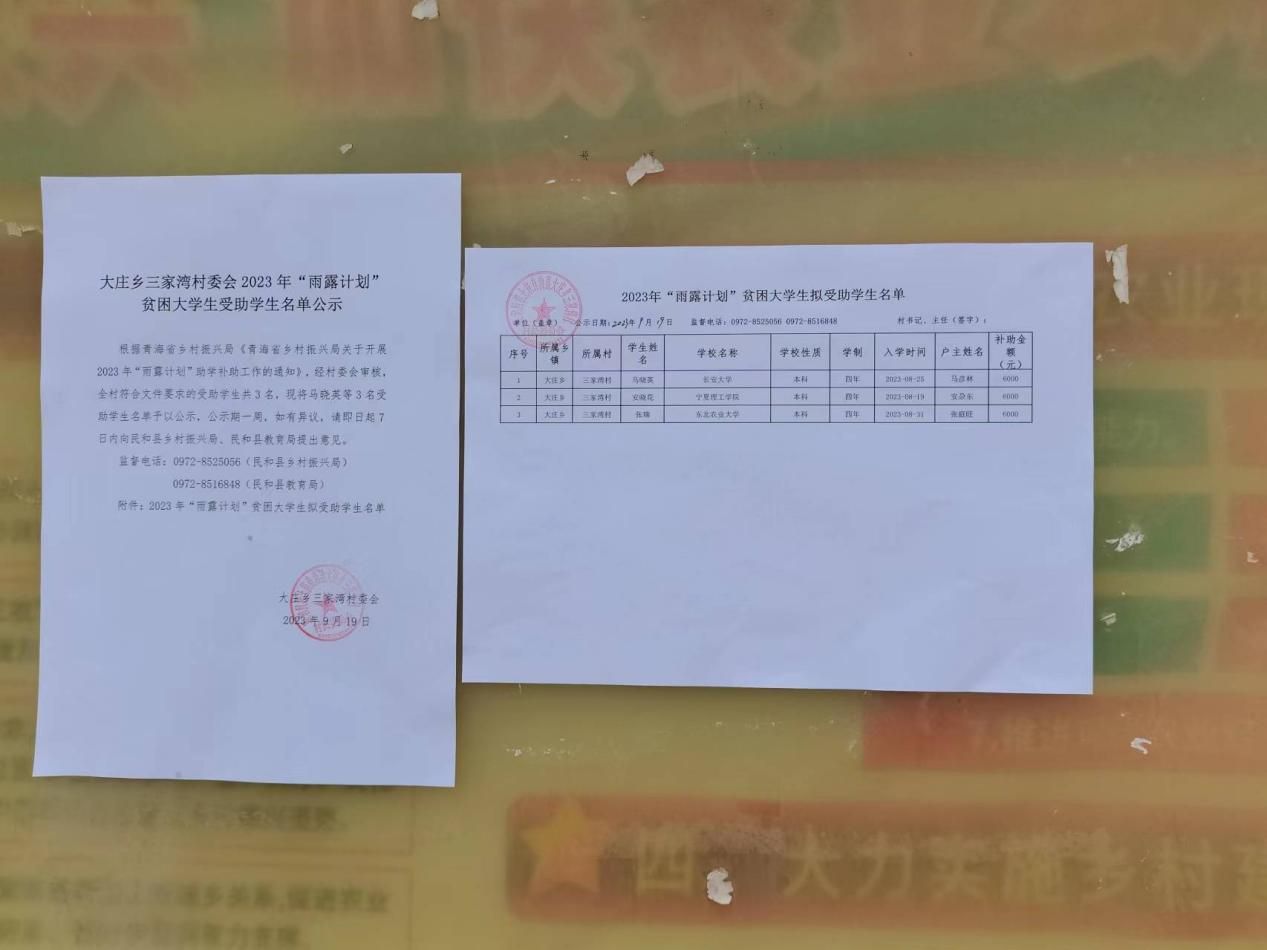 大庄乡三家湾村委会 2023 年“雨露计划”
贫困大学生受助学生名单公示
根据青海省乡村振兴局《青海省乡村振兴局关于开展
2023 年“雨露计划”助学补助工作的通知》，经村委会审核，
全村符合文件要求的受助学生共 3 名，现将马晓英等 3 名受
助学生名单予以公示，公示期一周，如有异议，请即日起 7
日内向民和县乡村振兴局、民和县教育局提出意见。
监督电话：0972-8525056（民和县乡村振兴局）
0972-8516848（民和县教育局）
附件：2023 年“雨露计划”贫困大学生拟受助学生名单
大庄乡三家湾村委会
2023 年 9 月 19 日
2023年“雨露计划”贫困大学生拟受助学生名单
单位（盖章） 公示日期：2023年 9 月 19 日 监督电话：0972-8525056 0972-8516848 村书记、主任（签字）：
序号 所属乡镇 所属村 学生姓名 学校名称 学校性质 学制 入学时间 户主姓名 补助金额（元）
1 大庄乡 三家湾村 马晓英 长安大学 本科 四年 2023-08-25 马彦林 6000
2 大庄乡 三家湾村 安晓花 宁夏理工学院 本科 四年 2023-08-19 安尕东 6000
3 大庄乡 三家湾村 张瑞 东北农业大学 本科 四年 2023-08-31 张庭旺 6000
农业
四 大力实施乡村建